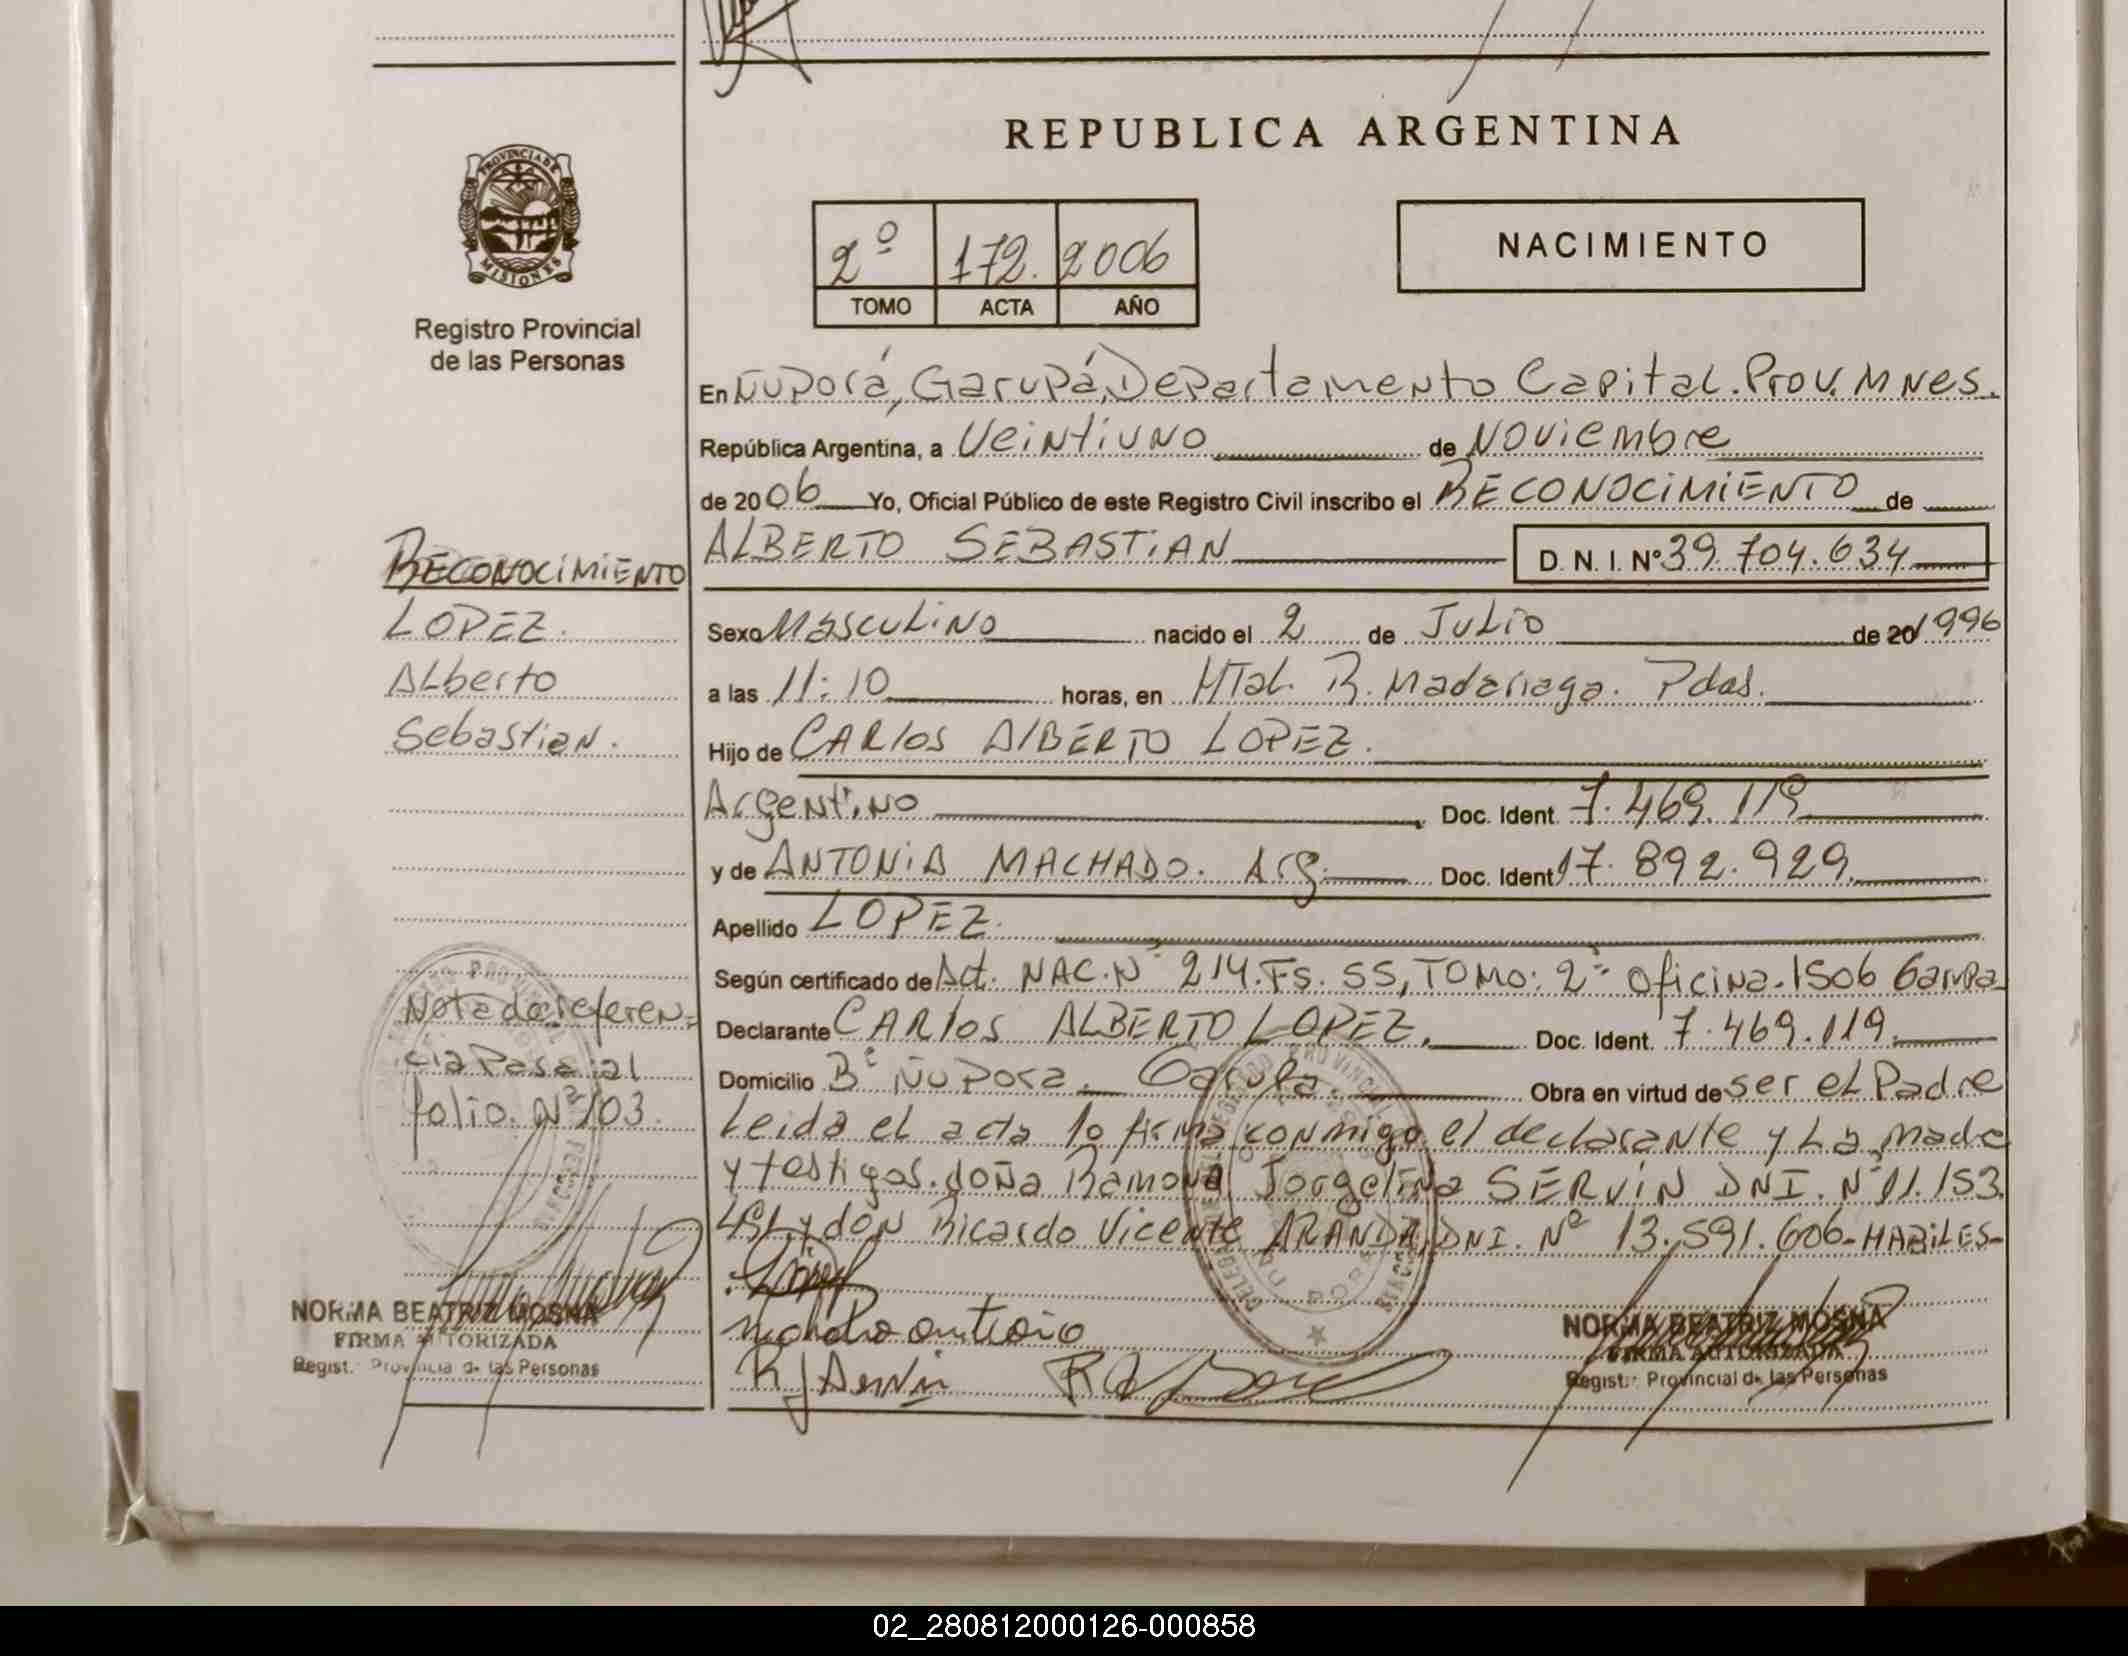 REPUBLICA ARGENTINA
PROVINCIA DE
MISIONES
Registro Provincial
de las Personas
2º 172. 2006
TOMO ACTA AÑO
NACIMIENTO
En Ñuporá, Garupá, Departamento Capital. Prov. Mnes.
República Argentina, a Veintiuno de Noviembre
de 2006 Yo, Oficial Público de este Registro Civil inscribo el RECONOCIMIENTO de
ALBERTO SEBASTIAN D. N. I. Nº 39.704.634
RECONOCIMIENTO
LOPEZ.
Alberto
Sebastian.
Sexo Masculino nacido el 2 de Julio de 20 1996
a las 11:10 horas, en Htal. R. Madariaga. Pdas.
Hijo de CARLOS ALBERTO LOPEZ.
Argentino Doc. Ident. 7.469.119
y de ANTONIA MACHADO. Arg. Doc. Ident 17.892.929.
Apellido LOPEZ.
Según certificado de Act. NAC. Nº 214. Fs. 55, TOMO: 2º Oficina. 1506 Garupa
Declarante CARLOS ALBERTO LOPEZ. Doc. Ident. 7.469.119.
Domicilio Bº Ñu Pora. Garupa. Obra en virtud de ser el Padre
Leida el acta la firma conmigo el declarante y La madre
y testigos. doña Ramona Jorgelina SERVIN DNI. Nº 11.153.
y don Ricardo Vicente ARANDA, DNI. Nº 13.591.606- HABILES-
Nota de referen-
cia Pasa al
folio. Nº 103.
Machado antonia
R J Servin
NORMA BEATRIZ MOSNA
FIRMA AUTORIZADA
Regist. Provincial de las Personas
NORMA BEATRIZ MOSNA
FIRMA AUTORIZADA
Regist. Provincial de las Personas
02_280812000126-000858